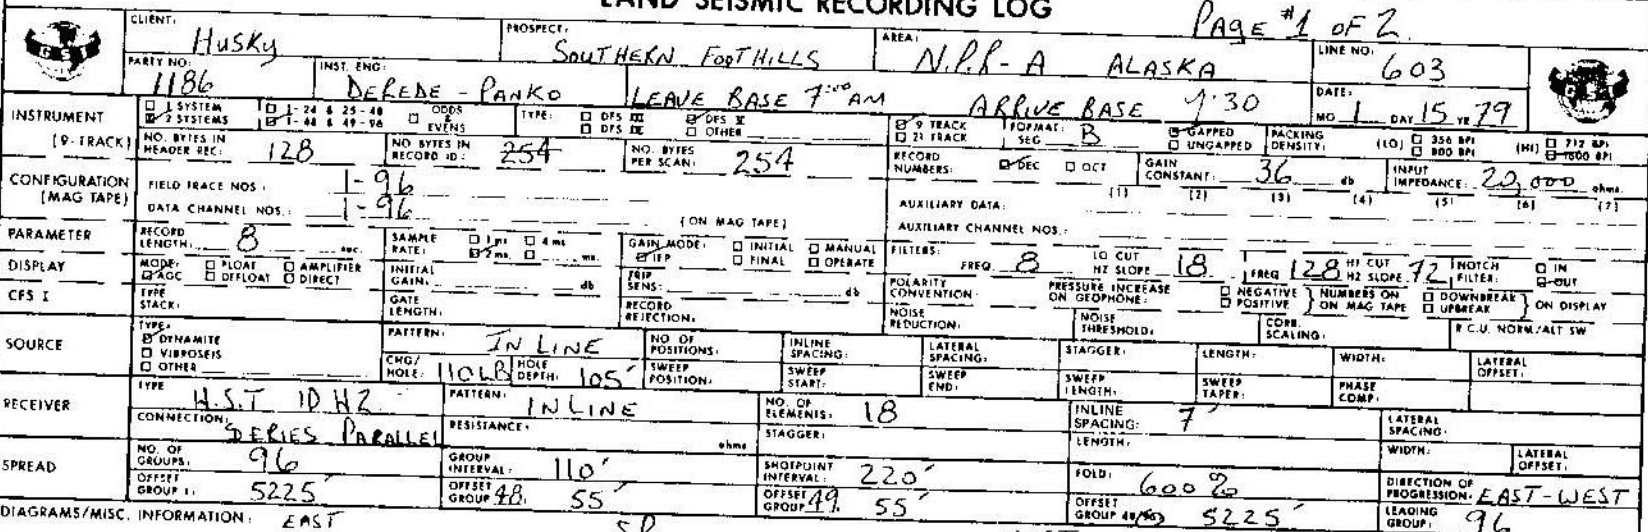 LAND SEISMIC RECORDING LOG
PAGE #1 OF 2
CLIENT: Husky PROSPECT: SOUTHERN FOOTHILLS AREA: N.P.R-A ALASKA LINE NO: 603
PARTY NO: 1186 INST. ENG: DEREDE - PANKO LEAVE BASE 7:00 AM ARRIVE BASE 7:30 DATE: MO 1 DAY 15 YR 79
INSTRUMENT 1 SYSTEM 2 SYSTEMS 1-24 & 25-48 1-48 & 49-96 ODDS & EVENS TYPE: DFS III DFS IV DFS V OTHER 9 TRACK 21 TRACK FORMAT: SEG B GAPPED UNGAPPED PACKING DENSITY: (LO) 356 BPI 800 BPI (HI) 712 BPI 1600 BPI
(9-TRACK) NO. BYTES IN HEADER REC: 128 NO BYTES IN RECORD ID: 254 NO. BYTES PER SCAN: 254 RECORD NUMBERS: DEC OCT GAIN CONSTANT: 36 db INPUT IMPEDANCE: 20,000 ohms
CONFIGURATION (MAG TAPE) FIELD TRACE NOS: 1-96 (1) (2) (3) (4) (5) (6) (7)
DATA CHANNEL NOS.: 1-96 (ON MAG TAPE) AUXILIARY DATA:
AUXILIARY CHANNEL NOS.:
PARAMETER RECORD LENGTH: 8 sec. SAMPLE RATE: 1 ms 4 ms 2 ms. ms. GAIN MODE: IFP INITIAL FINAL MANUAL OPERATE FILTERS: FREQ 8 LO CUT HZ SLOPE 18 FREQ 128 HI CUT HZ SLOPE 72 NOTCH FILTER: IN OUT
DISPLAY MODE: AGC FLOAT DEFLOAT AMPLIFIER DIRECT INITIAL GAIN: db TRIP SENS: db POLARITY CONVENTION: PRESSURE INCREASE ON GEOPHONE: NEGATIVE POSITIVE NUMBERS ON MAG TAPE DOWNBREAK UPBREAK ON DISPLAY
CFS I TYPE STACK: GATE LENGTH: RECORD REJECTION: NOISE REDUCTION: NOISE THRESHOLD: CORR. SCALING: R.C.U. NORM/ALT SW
SOURCE TYPE: DYNAMITE VIBROSEIS OTHER PATTERN: IN LINE NO OF POSITIONS: INLINE SPACING: LATERAL SPACING: STAGGER: LENGTH: WIDTH: LATERAL OFFSET:
CHG/HOLE: 110LB HOLE DEPTH: 105' SWEEP POSITION: SWEEP START: SWEEP END: SWEEP LENGTH: SWEEP TAPER: PHASE COMP:
RECEIVER TYPE H.S.T 10 HZ PATTERN: INLINE NO. OF ELEMENTS: 18 INLINE SPACING: 7' LATERAL SPACING:
CONNECTION: SERIES PARALLEL RESISTANCE: ohms STAGGER: LENGTH: WIDTH: LATERAL OFFSET:
SPREAD NO. OF GROUPS: 96 GROUP INTERVAL: 110' SHOTPOINT INTERVAL: 220' FOLD: 600% DIRECTION OF PROGRESSION: EAST-WEST
OFFSET GROUP 1: 5225' OFFSET GROUP 48: 55' OFFSET GROUP 49 55' OFFSET GROUP 48/96 5225' LEADING GROUP: 96
DIAGRAMS/MISC. INFORMATION: EAST SP